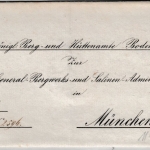 Königl Berg- und Hüttenamte Boden
Zur
General-Bergwerks- und Salinen-Admini
in
München